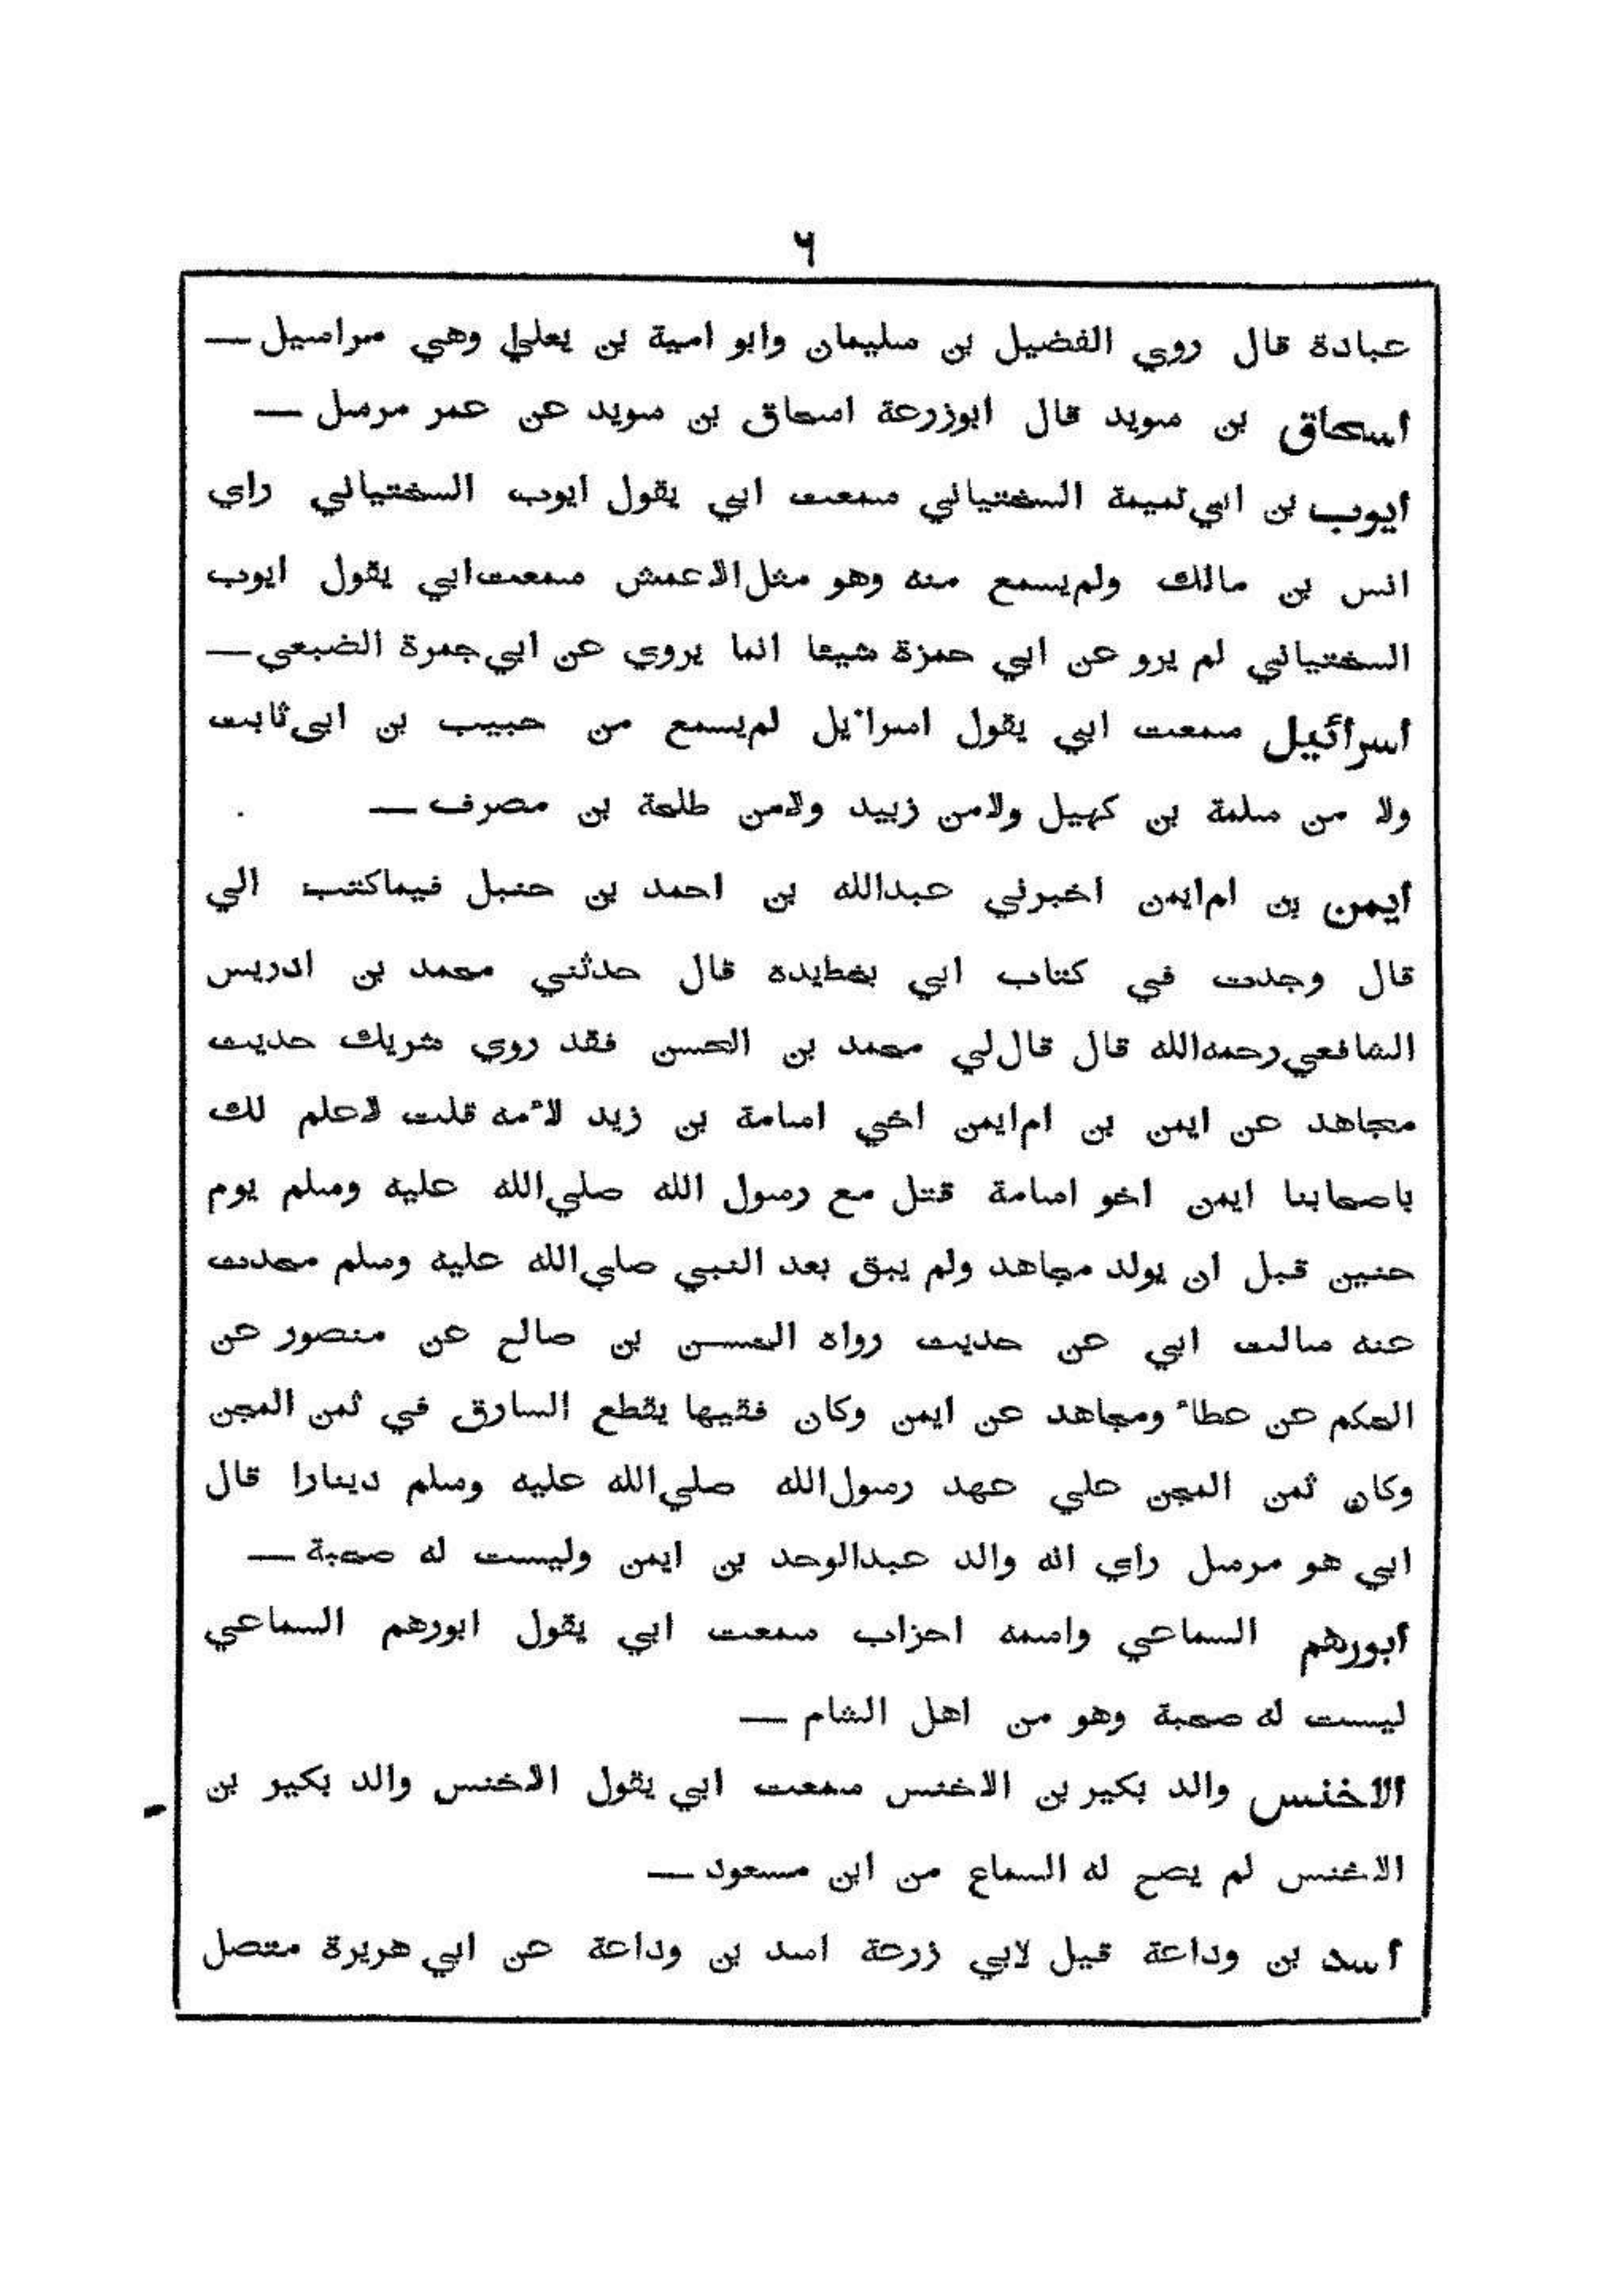 ٦
عبادة قال روي الفضيل بن سليمان وابو امية بن يعلي وهي مراسيل —
أسحاق بن سويد قال ابوزرعة اسحاق بن سويد عن عمر مرسل —
أيوب بن ابي تميمة السختياني سمعت ابي يقول ايوب السختياني راي
انس بن مالك ولم يسمع منه وهو مثل الاعمش سمعت ابي يقول ايوب
السختياني لم يرو عن ابي حمزة شيئا انما يروي عن ابي جمرة الضبعي —
أسرائيل سمعت ابي يقول اسرائيل لم يسمع من حبيب بن ابي ثابت
ولا من سلمة بن كهيل ولا من زبيد ولا من طلحة بن مصرف —
أيمن بن ام ايمن اخبرني عبدالله بن احمد بن حنبل فيما كتب الي
قال وجدت في كتاب ابي بخط يده قال حدثني محمد بن ادريس
الشافعي رحمه الله قال قال لي محمد بن الحسن فقد روي شريك حديث
مجاهد عن ايمن بن ام ايمن اخي اسامة بن زيد لأمه قلت لاعلم لك
باصحابنا ايمن اخو اسامة قتل مع رسول الله صلي الله عليه وسلم يوم
حنين قبل ان يولد مجاهد ولم يبق بعد النبي صلي الله عليه وسلم محدث
عنه سالت ابي عن حديث رواه الحسن بن صالح عن منصور عن
الحكم عن عطاء ومجاهد عن ايمن وكان فقيها يقطع السارق في ثمن المجن
وكان ثمن المجن علي عهد رسول الله صلي الله عليه وسلم دينارا قال
ابي هو مرسل راي انه والد عبدالوحد بن ايمن وليست له صحبة —
أبورهم السماعي واسمه احزاب سمعت ابي يقول ابورهم السماعي
ليست له صحبة وهو من اهل الشام —
الاخنس والد بكير بن الاخنس سمعت ابي يقول الاخنس والد بكير بن
الاخنس لم يصح له السماع من ابن مسعود —
أسد بن وداعة قيل لابي زرعة اسد بن وداعة عن ابي هريرة متصل